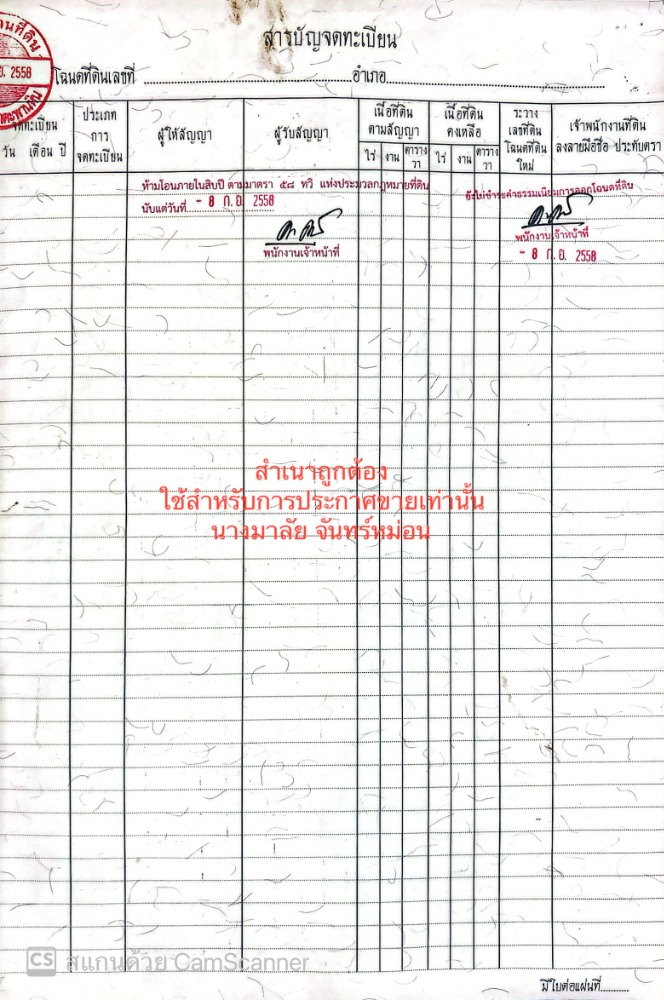 สารบัญจดทะเบียน
ย. 2558
โฉนดที่ดินเลขที่ ............................ อำเภอ............................
จดทะเบียน
วัน เดือน ปี
ประเภท
การ
จดทะเบียน
ผู้ให้สัญญา
ผู้รับสัญญา
เนื้อที่ดิน
ตามสัญญา
ไร่ งาน ตาราง
วา
เนื้อที่ดิน
คงเหลือ
ไร่ งาน ตาราง
วา
ระวาง
เลขที่ดิน
โฉนดที่ดิน
ใหม่
เจ้าพนักงานที่ดิน
ลงลายมือชื่อ ประทับตรา
ห้ามโอนภายในสิบปี ตามมาตรา ๕๘ ทวิ แห่งประมวลกฎหมายที่ดิน
นับแต่วันที่ - 8 ก.ย. 2558
พนักงานเจ้าหน้าที่
ยังไม่ชำระค่าธรรมเนียมการออกโฉนดที่ดิน
พนักงานเจ้าหน้าที่
- 8 ก.ย. 2558
สำเนาถูกต้อง
ใช้สำหรับการประกาศขายเท่านั้น
นางมาลัย จันทร์หม่อน
CS สแกนด้วย CamScanner
มีใบต่อแผ่นที่..........